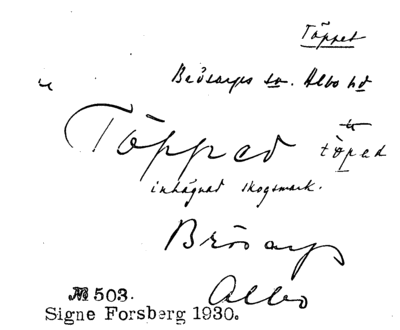 Töppet
Brösarps sn. Albo hd
Tōpped tōped
inhägnad skogsmark.
Brösarp
Albo
№ 503.
Signe Forsberg 1930.